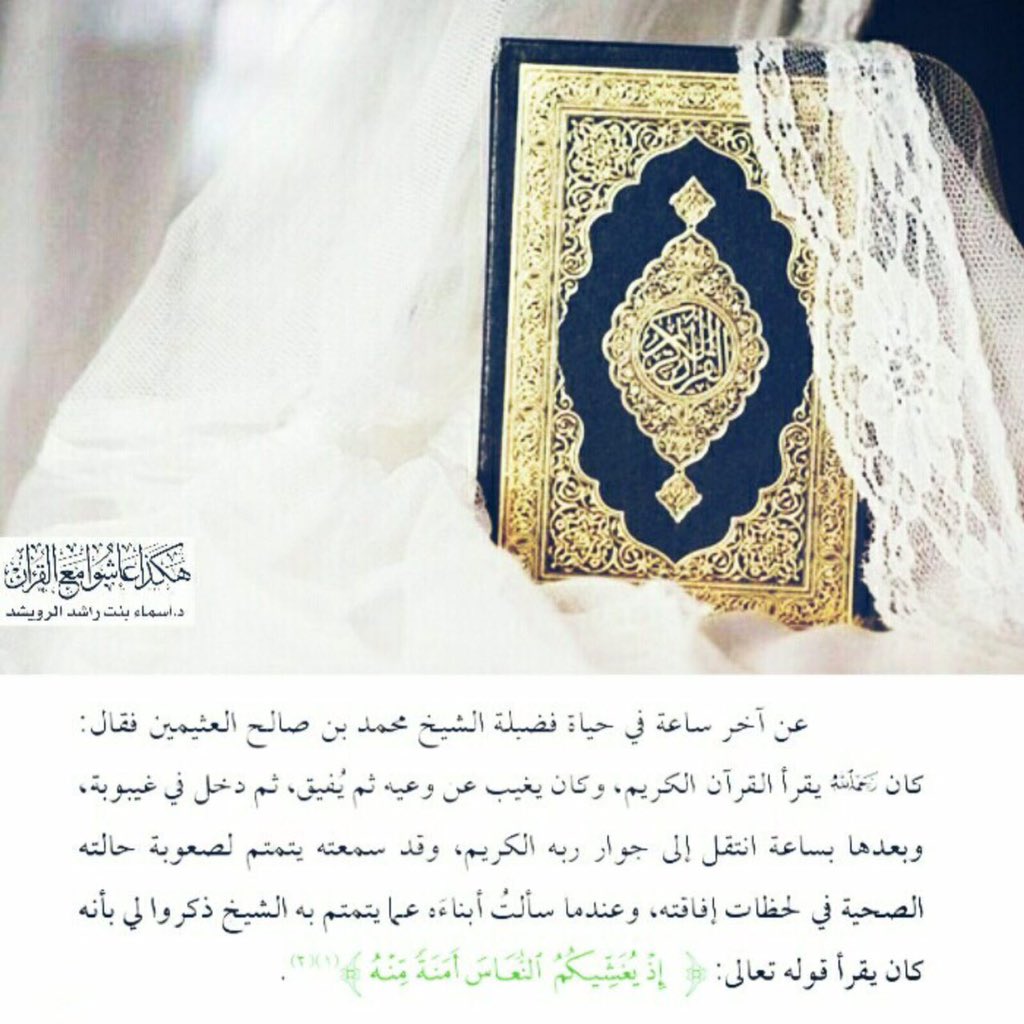 القرآن الكريم
هكذا عاشوا مع القرآن
د.اسماء بنت راشد الرويشد
عن آخر ساعة في حياة فضيلة الشيخ محمد بن صالح العثيمين فقال:
كان رحمه الله يقرأ القرآن الكريم، وكان يغيب عن وعيه ثم يُفيق، ثم دخل في غيبوبة،
وبعدها بساعة انتقل إلى جوار ربه الكريم، وقد سمعته يتمتم لصعوبة حالته
الصحية في لحظات إفاقته، وعندما سألتُ أبناءَه عما يتمتم به الشيخ ذكروا لي بأنه
كان يقرأ قوله تعالى: ﴿ إِذْ يُغَشِّيكُمُ ٱلنُّعَاسَ أَمَنَةً مِّنْهُ ﴾(١)(٢).